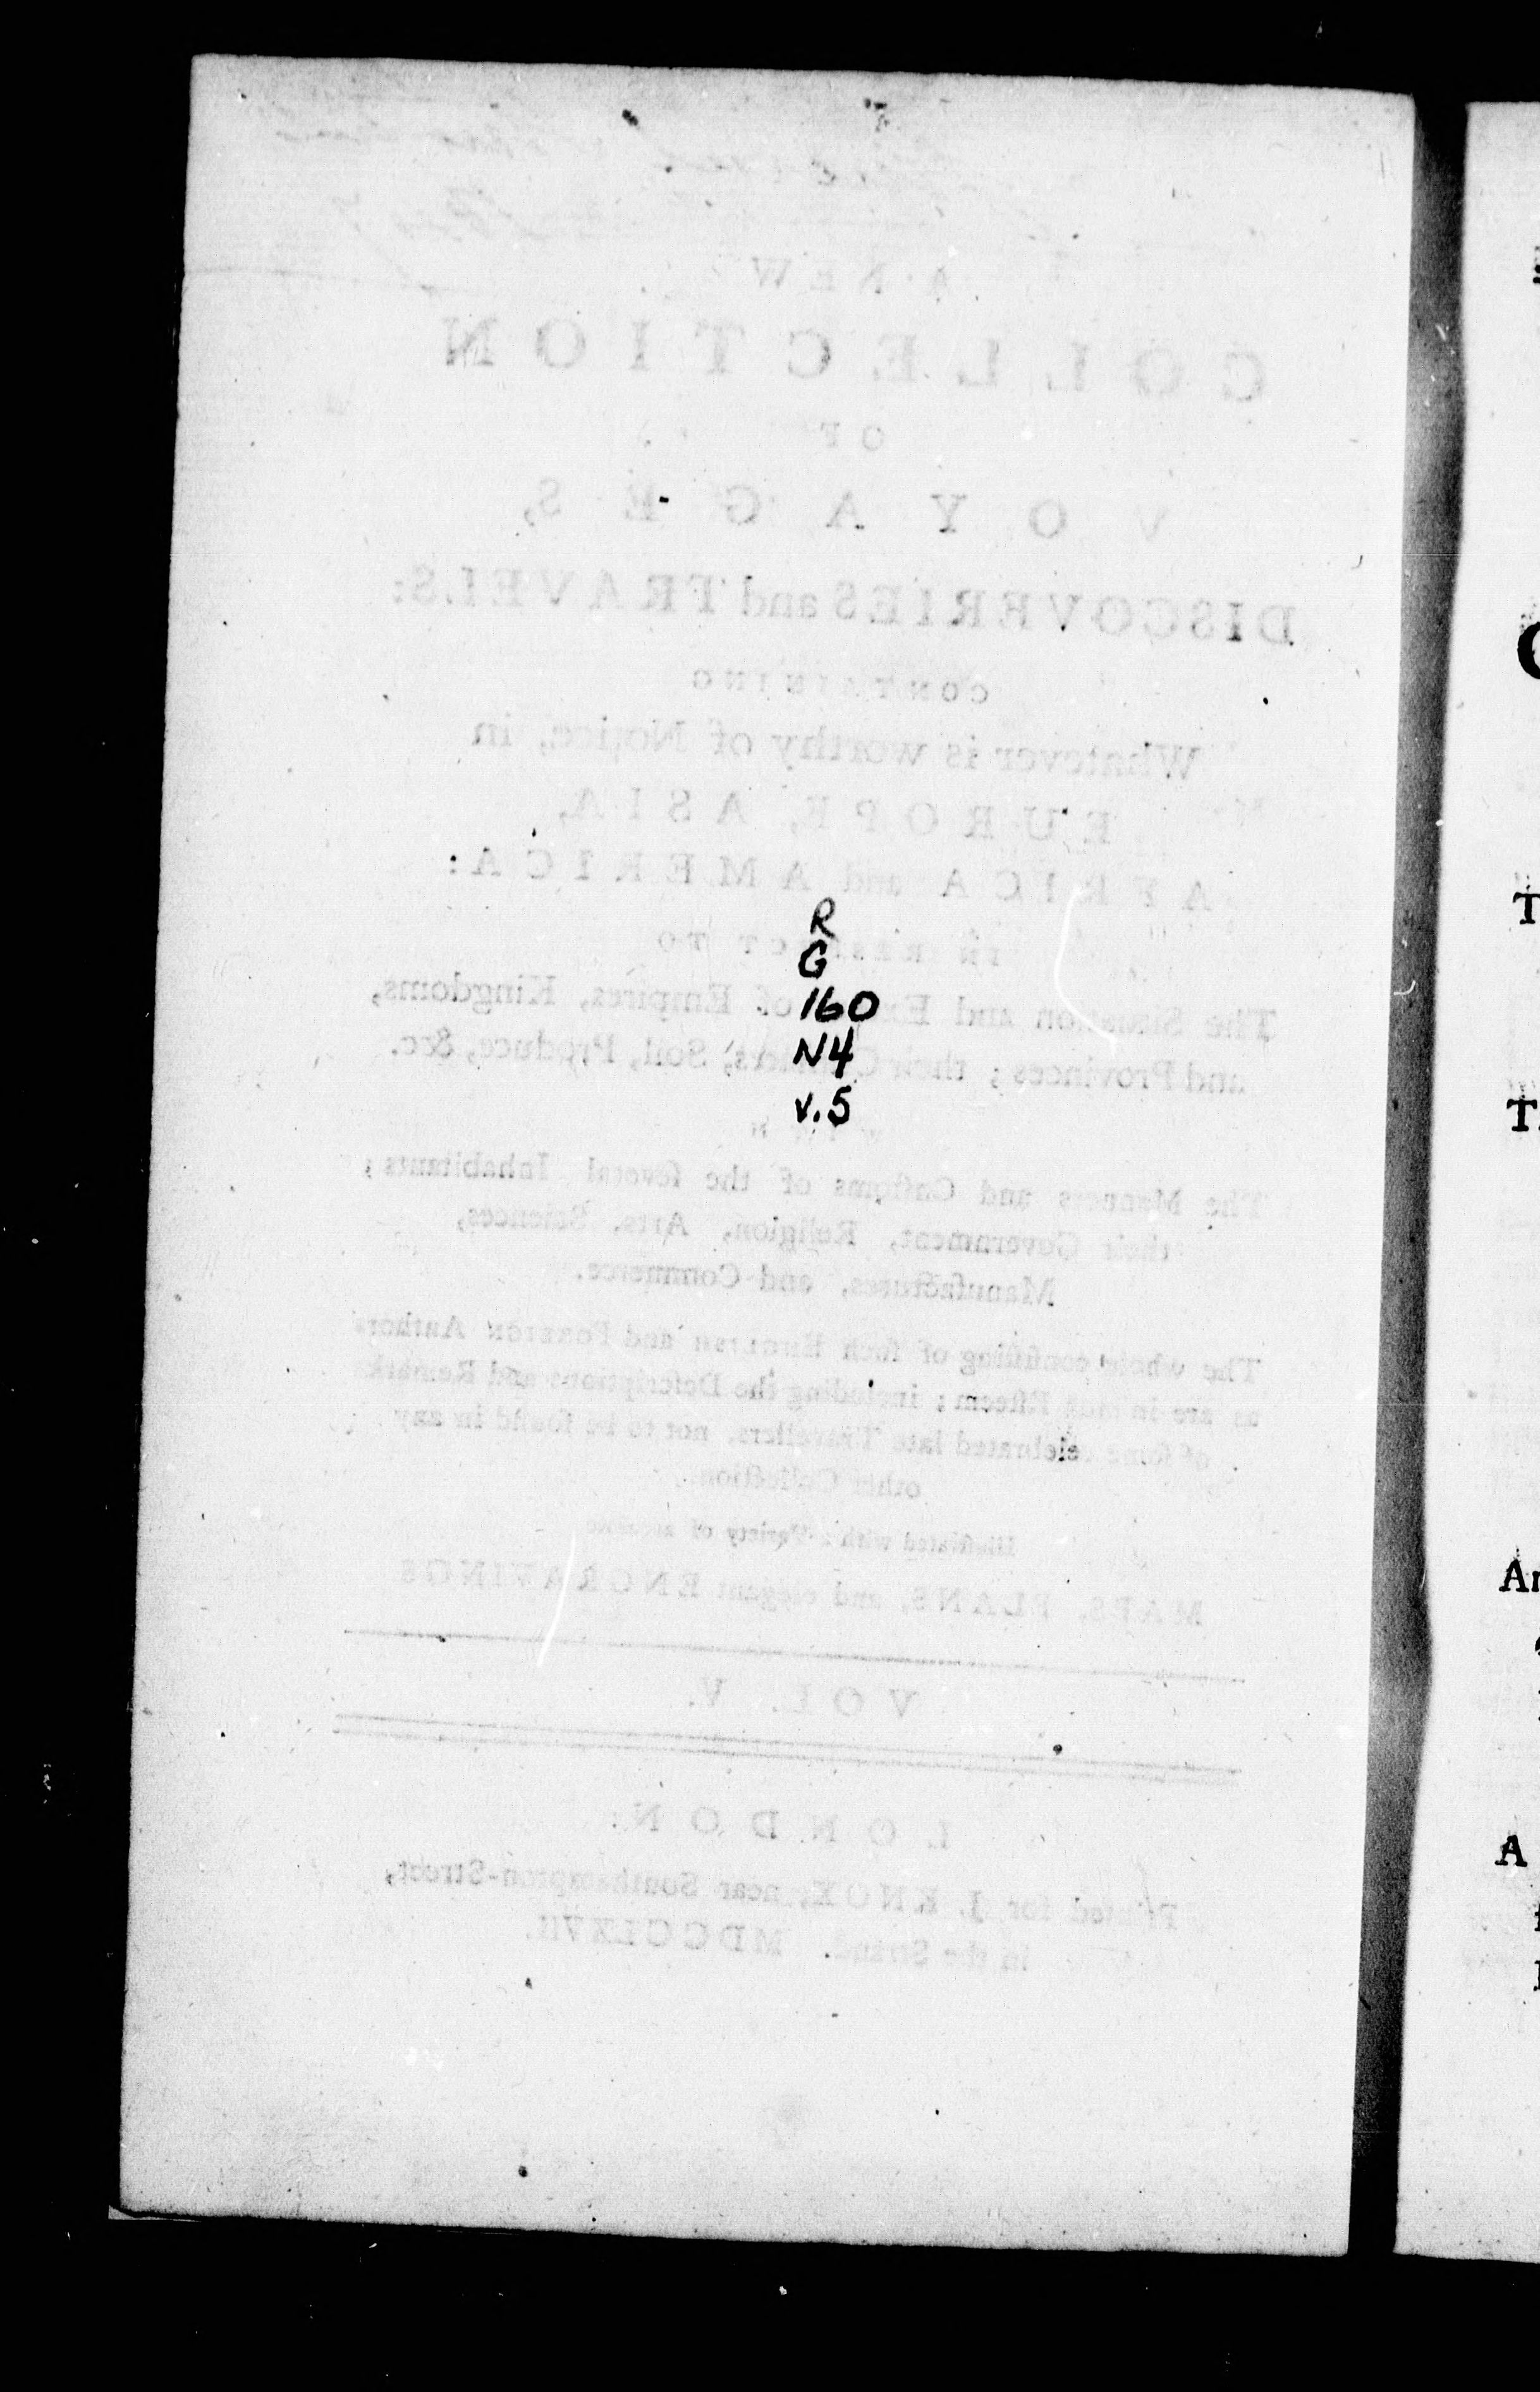 A NEW
COLLECTION
OF
VOYAGES,
DISCOVERIES and TRAVELS:
CONTAINING
Whatever is worthy of Notice, in
EUROPE, ASIA,
AFRICA and AMERICA:
R
IN RESPECT TO
G
The Situation and of Empires, Kingdoms,
160
and Provinces; their Soil, Produce, &c.
N4
v.5
WITH
The Manners and Customs of the several Inhabitants;
their Government, Religion, Arts, Sciences,
Manufactures, and Commerce.
The whole consisting of such ENGLISH and FOREIGN Authors
as are in most Esteem; including the Descriptions and Remarks
of some celebrated late Travellers, not to be found in any
other Collection.
Illustrated with a Variety of accurate
MAPS, PLANS, and elegant ENGRAVINGS
VOL. V.
LONDON:
Printed for J. KNOX, near Southampton-Street,
in the Strand. MDCCLXVII.